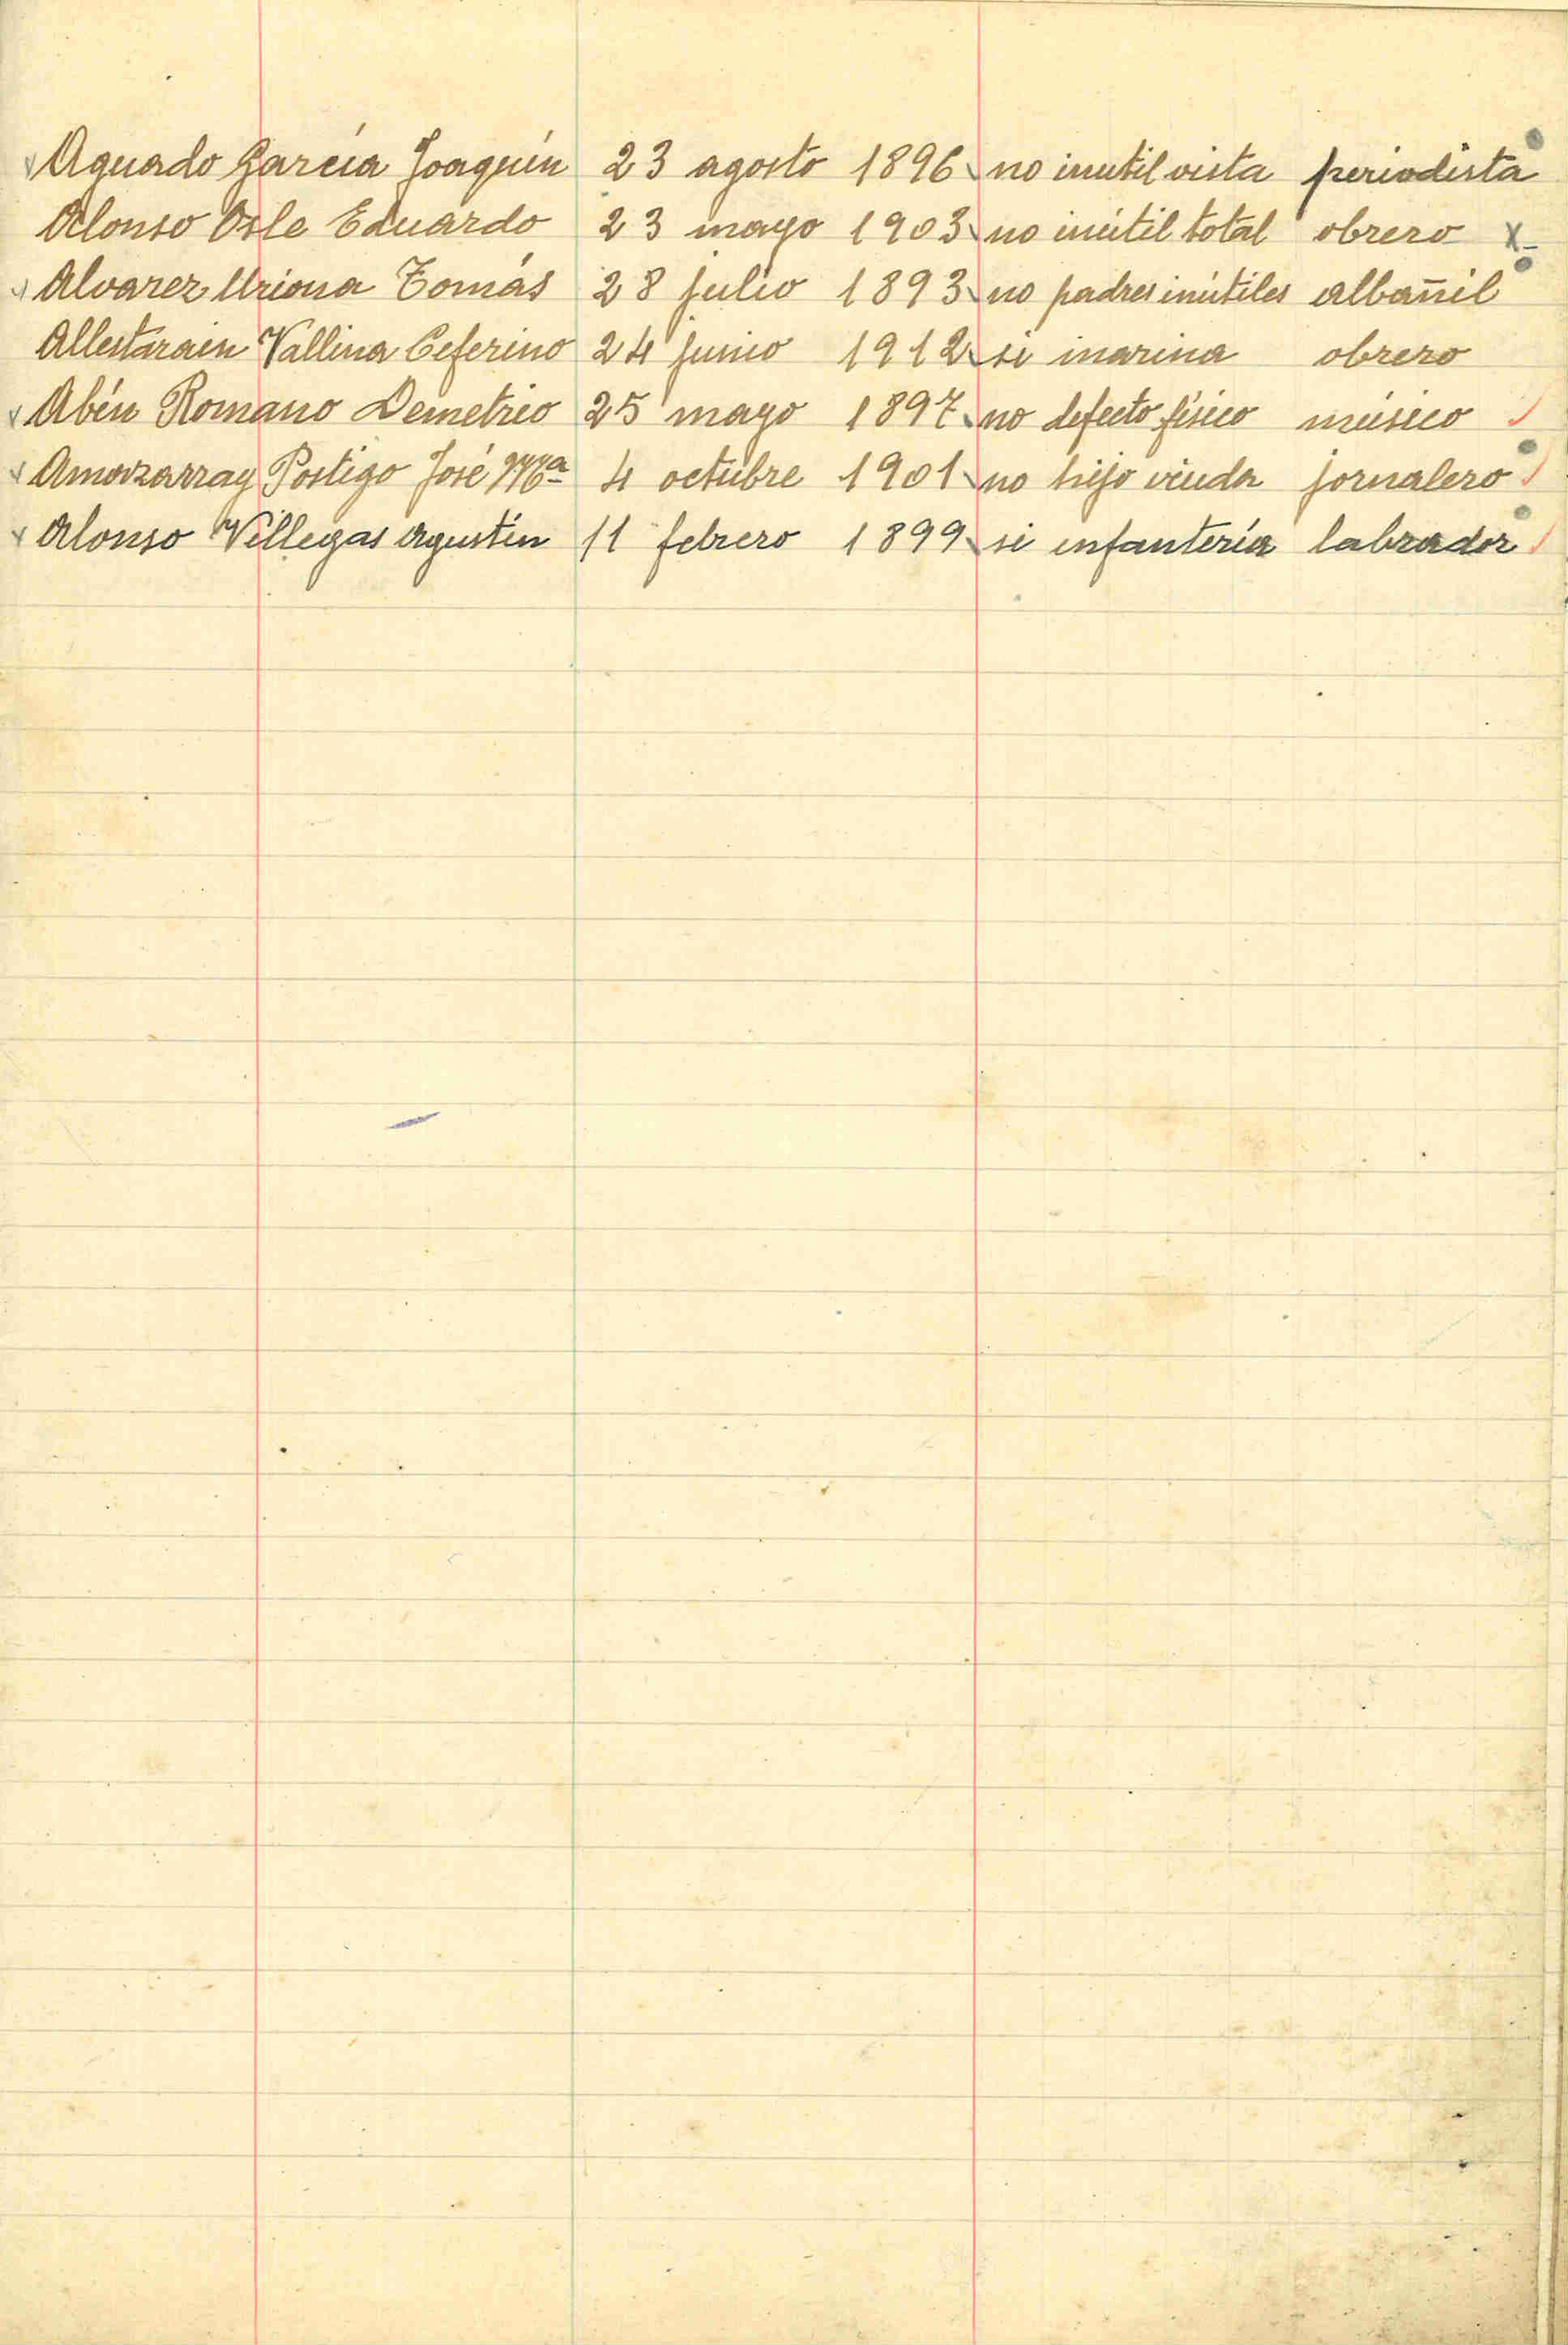 Aguado García Joaquín 23 agosto 1896 no inutil vista periodista
Alonso Osle Eduardo 23 mayo 1903 no inútil total obrero x
Alvarez Uriona Tomás 28 julio 1893 no padres inútiles albañil
Allestarain Vallina Ceferino 24 junio 1912 si marina obrero
Abín Romano Demetrio 25 mayo 1897 no defecto físico músico
Amorzarray Postigo José Mª 4 octubre 1901 no hijo viuda jornalero
Alonso Villegas Agustín 11 febrero 1899 si infantería labrador